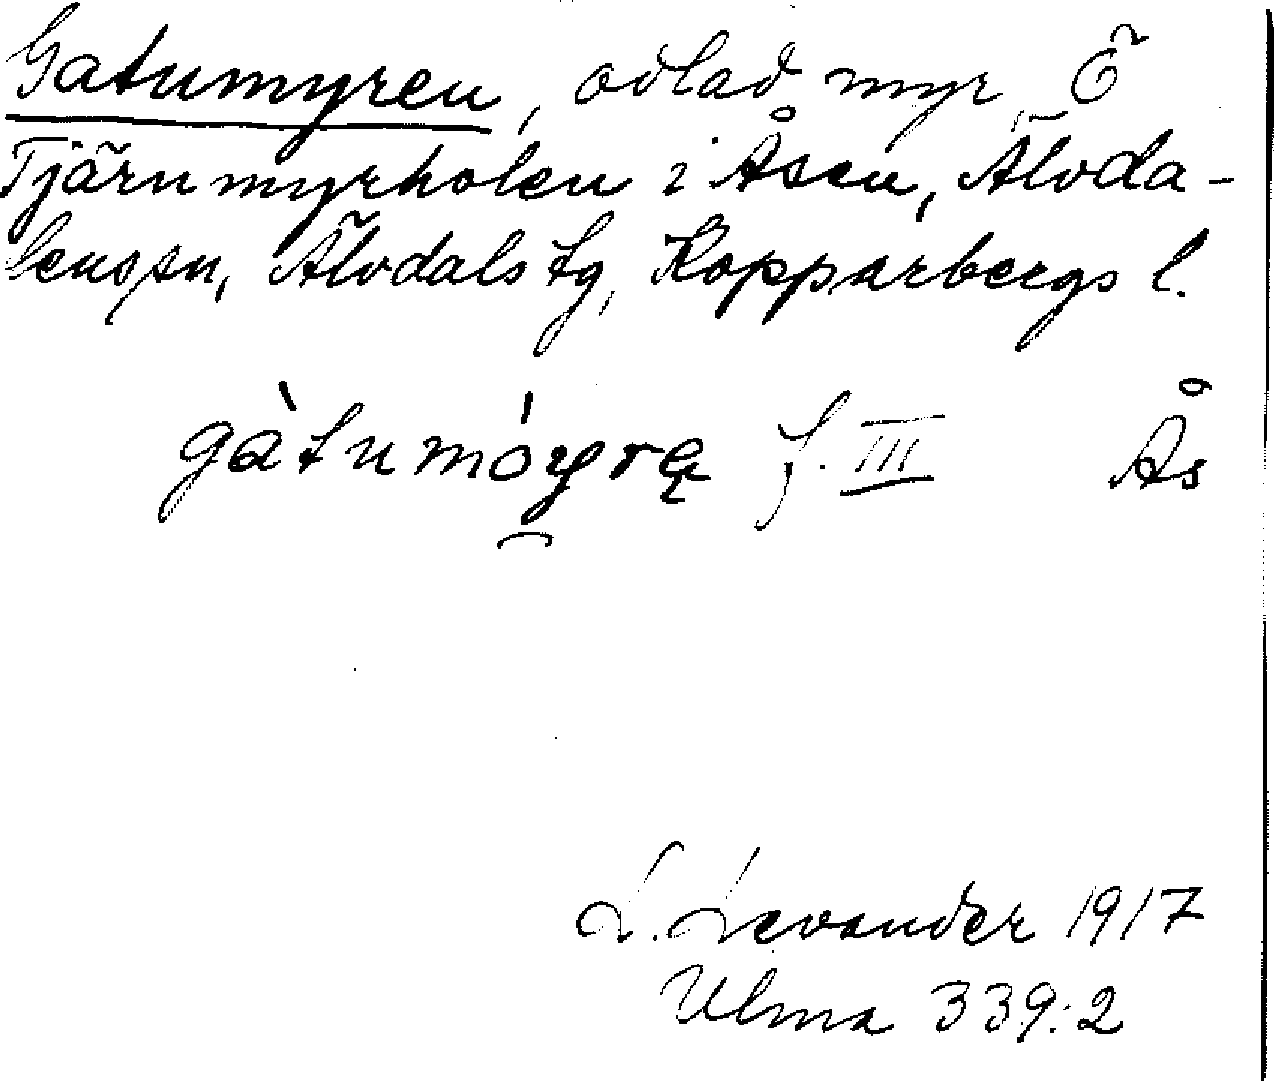 Gatumyren, odlad myr, Ö
Tjärnmyrholen i Åsen, Älvda-
lens sn, Älvdals tg, Kopparbergs l.
gàtumóyrą f. III Ås
L. Levander 1917
Ulma 339:2